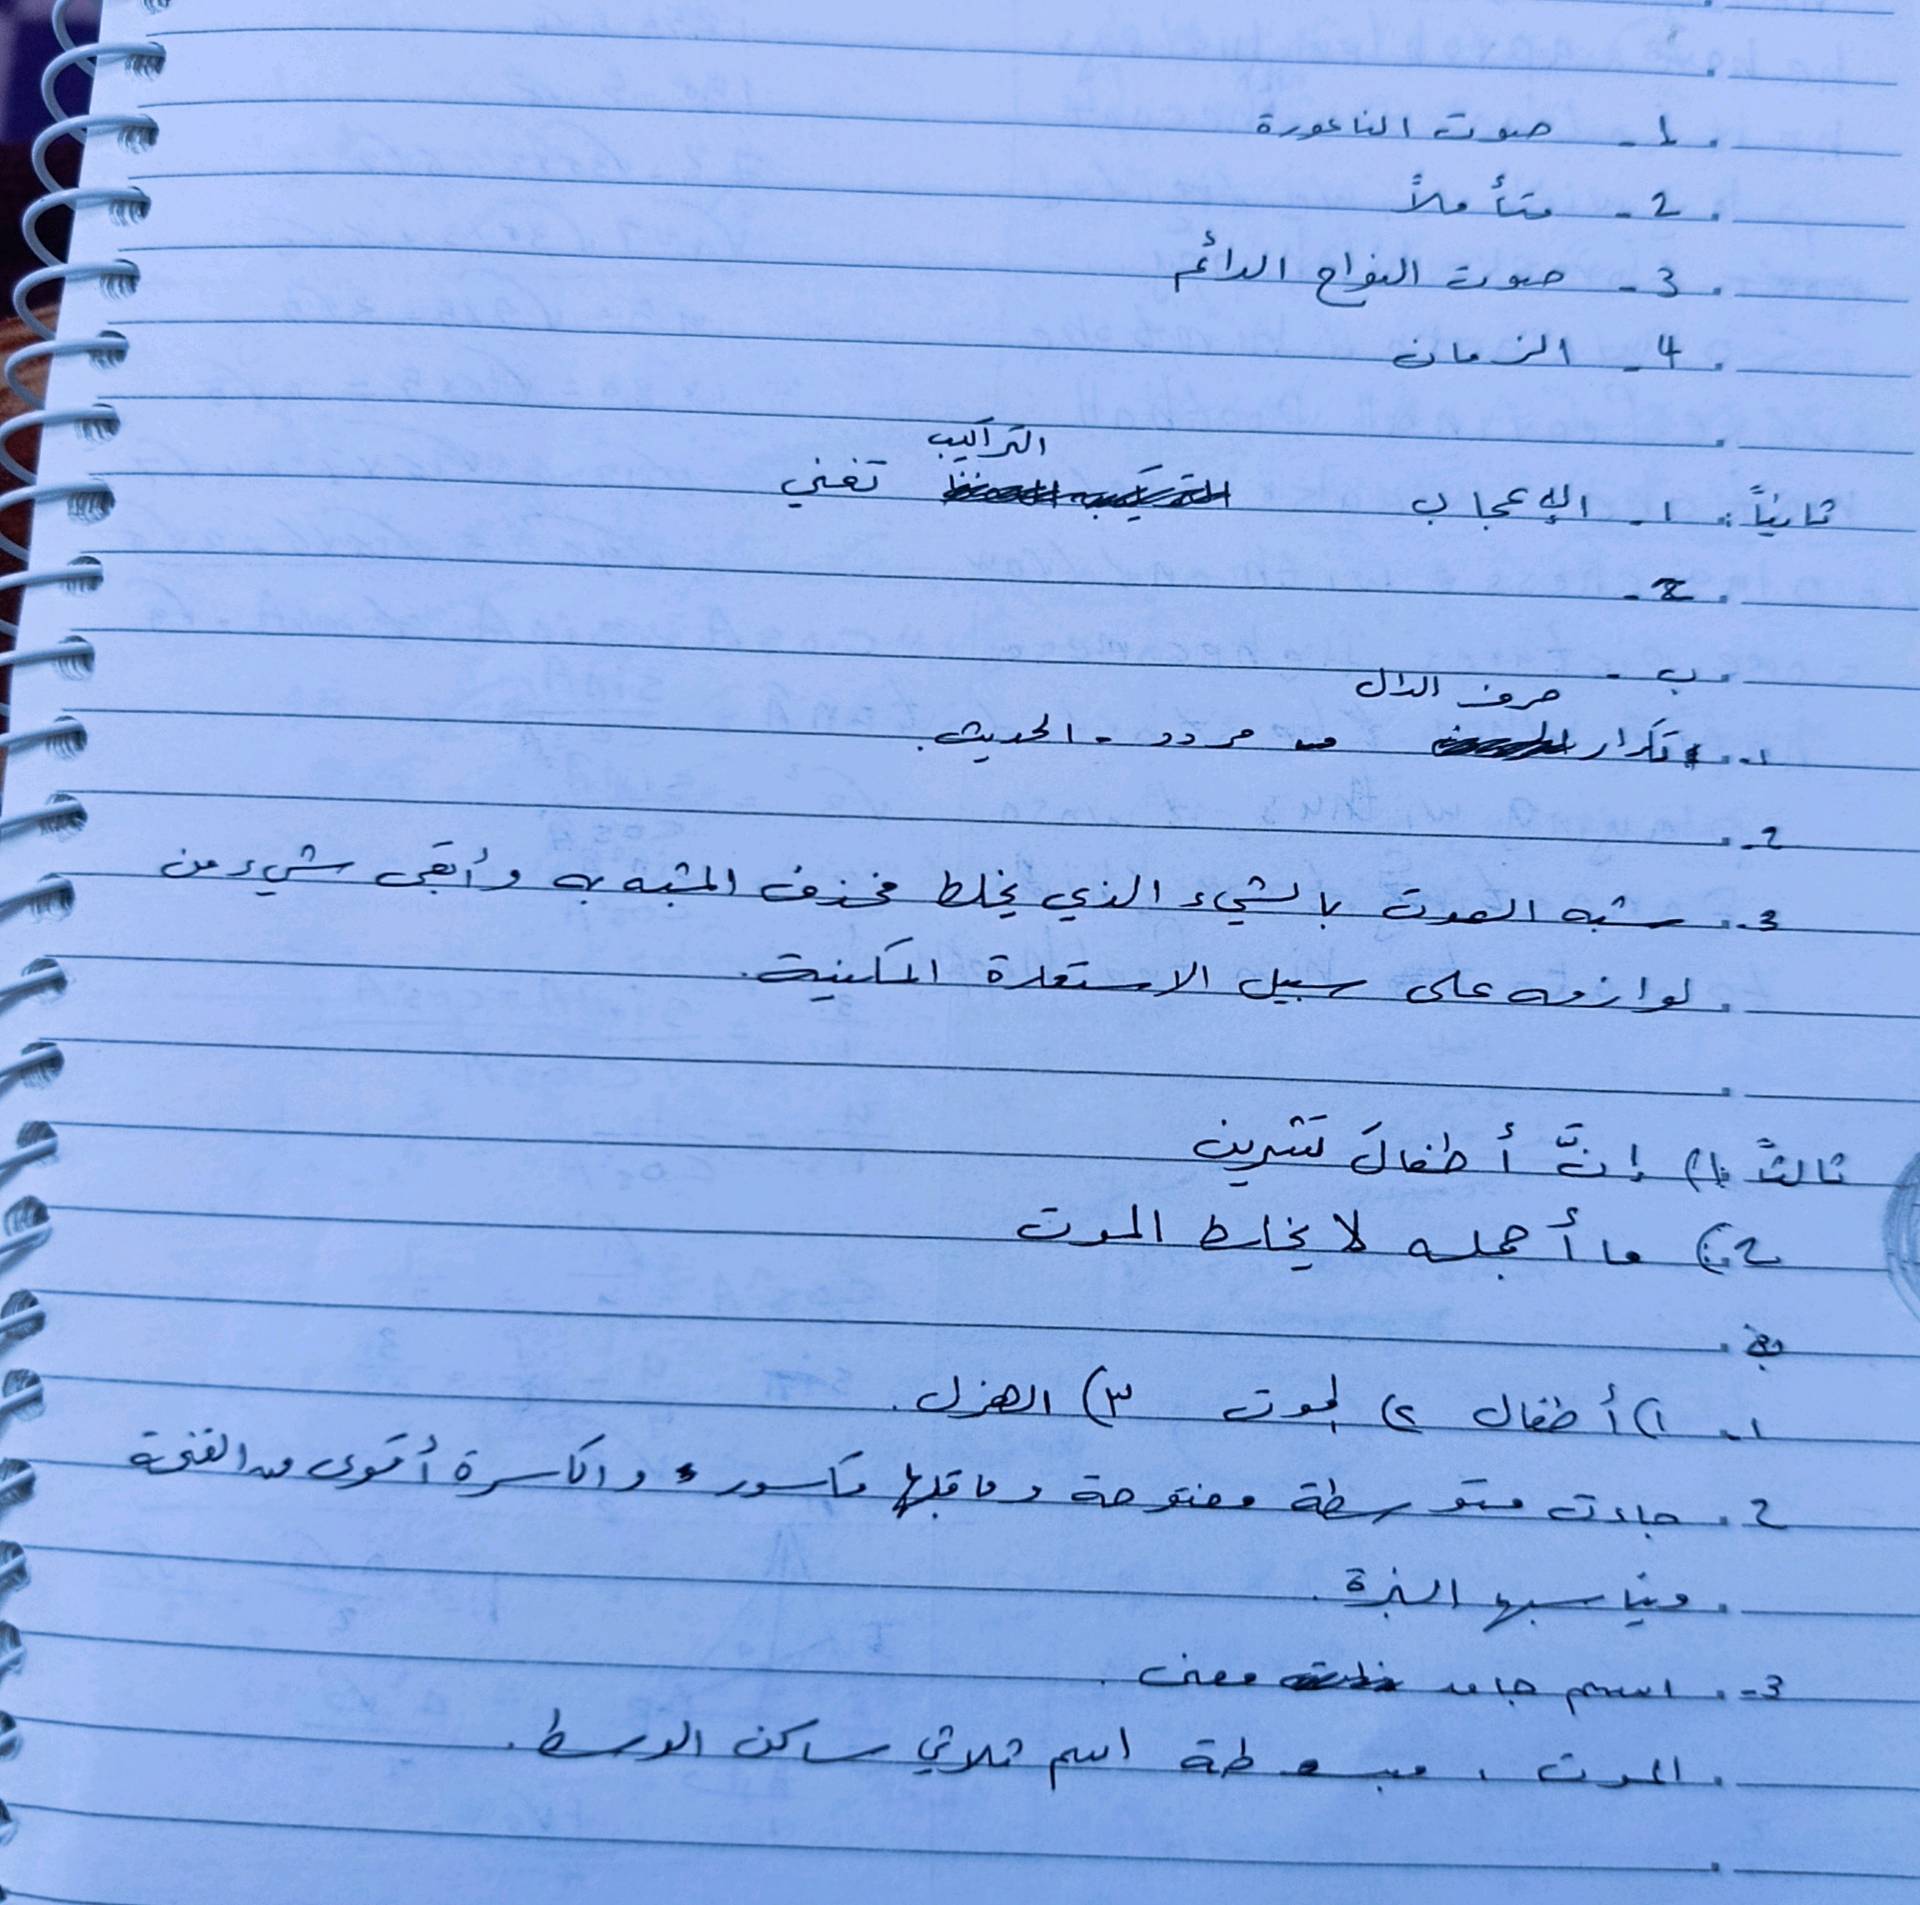 1- صوت الناعورة
2- متأملاً
3- صوت النواح الدائم
4- الزمان
التراكيب
ثانياً: 1- الإعجاب تغني
2-
ب-
حرف الدال
1- تكرار من مردد - الحديث.
2-
3- شبه الصوت بالشيء الذي يخلط فحذف المشبه به وأبقى شيء من
لوازمه على سبيل الاستعارة المكنية.
ثالثاً 1) إنَّ أطفالَ تشرين
2) ما أجمله لا يخالط الموت
ب
1- 1) أطفال 2) الموت 3) الهزل.
2. جاءت متوسطة مفتوحة وما قبلها مكسور والكسرة أقوى من الفتحة
ويناسبها النبرة.
3- اسم جامد معنى.
الموت، مبسوطة اسم ثلاثي ساكن الوسط.